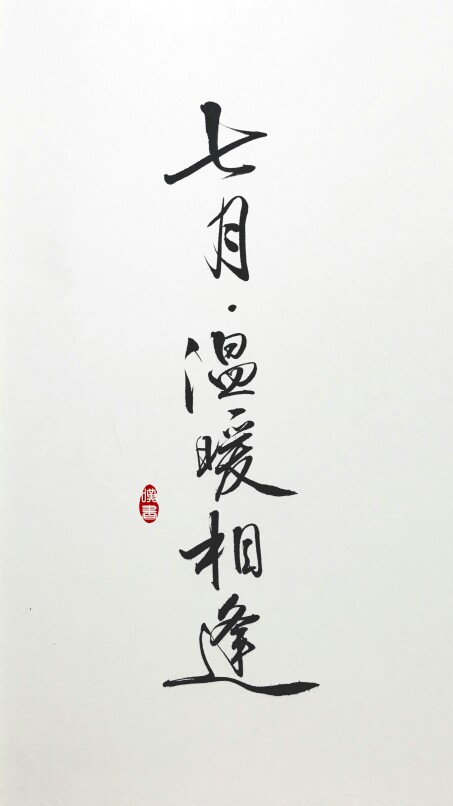 七月·温暖相逢
嘆書